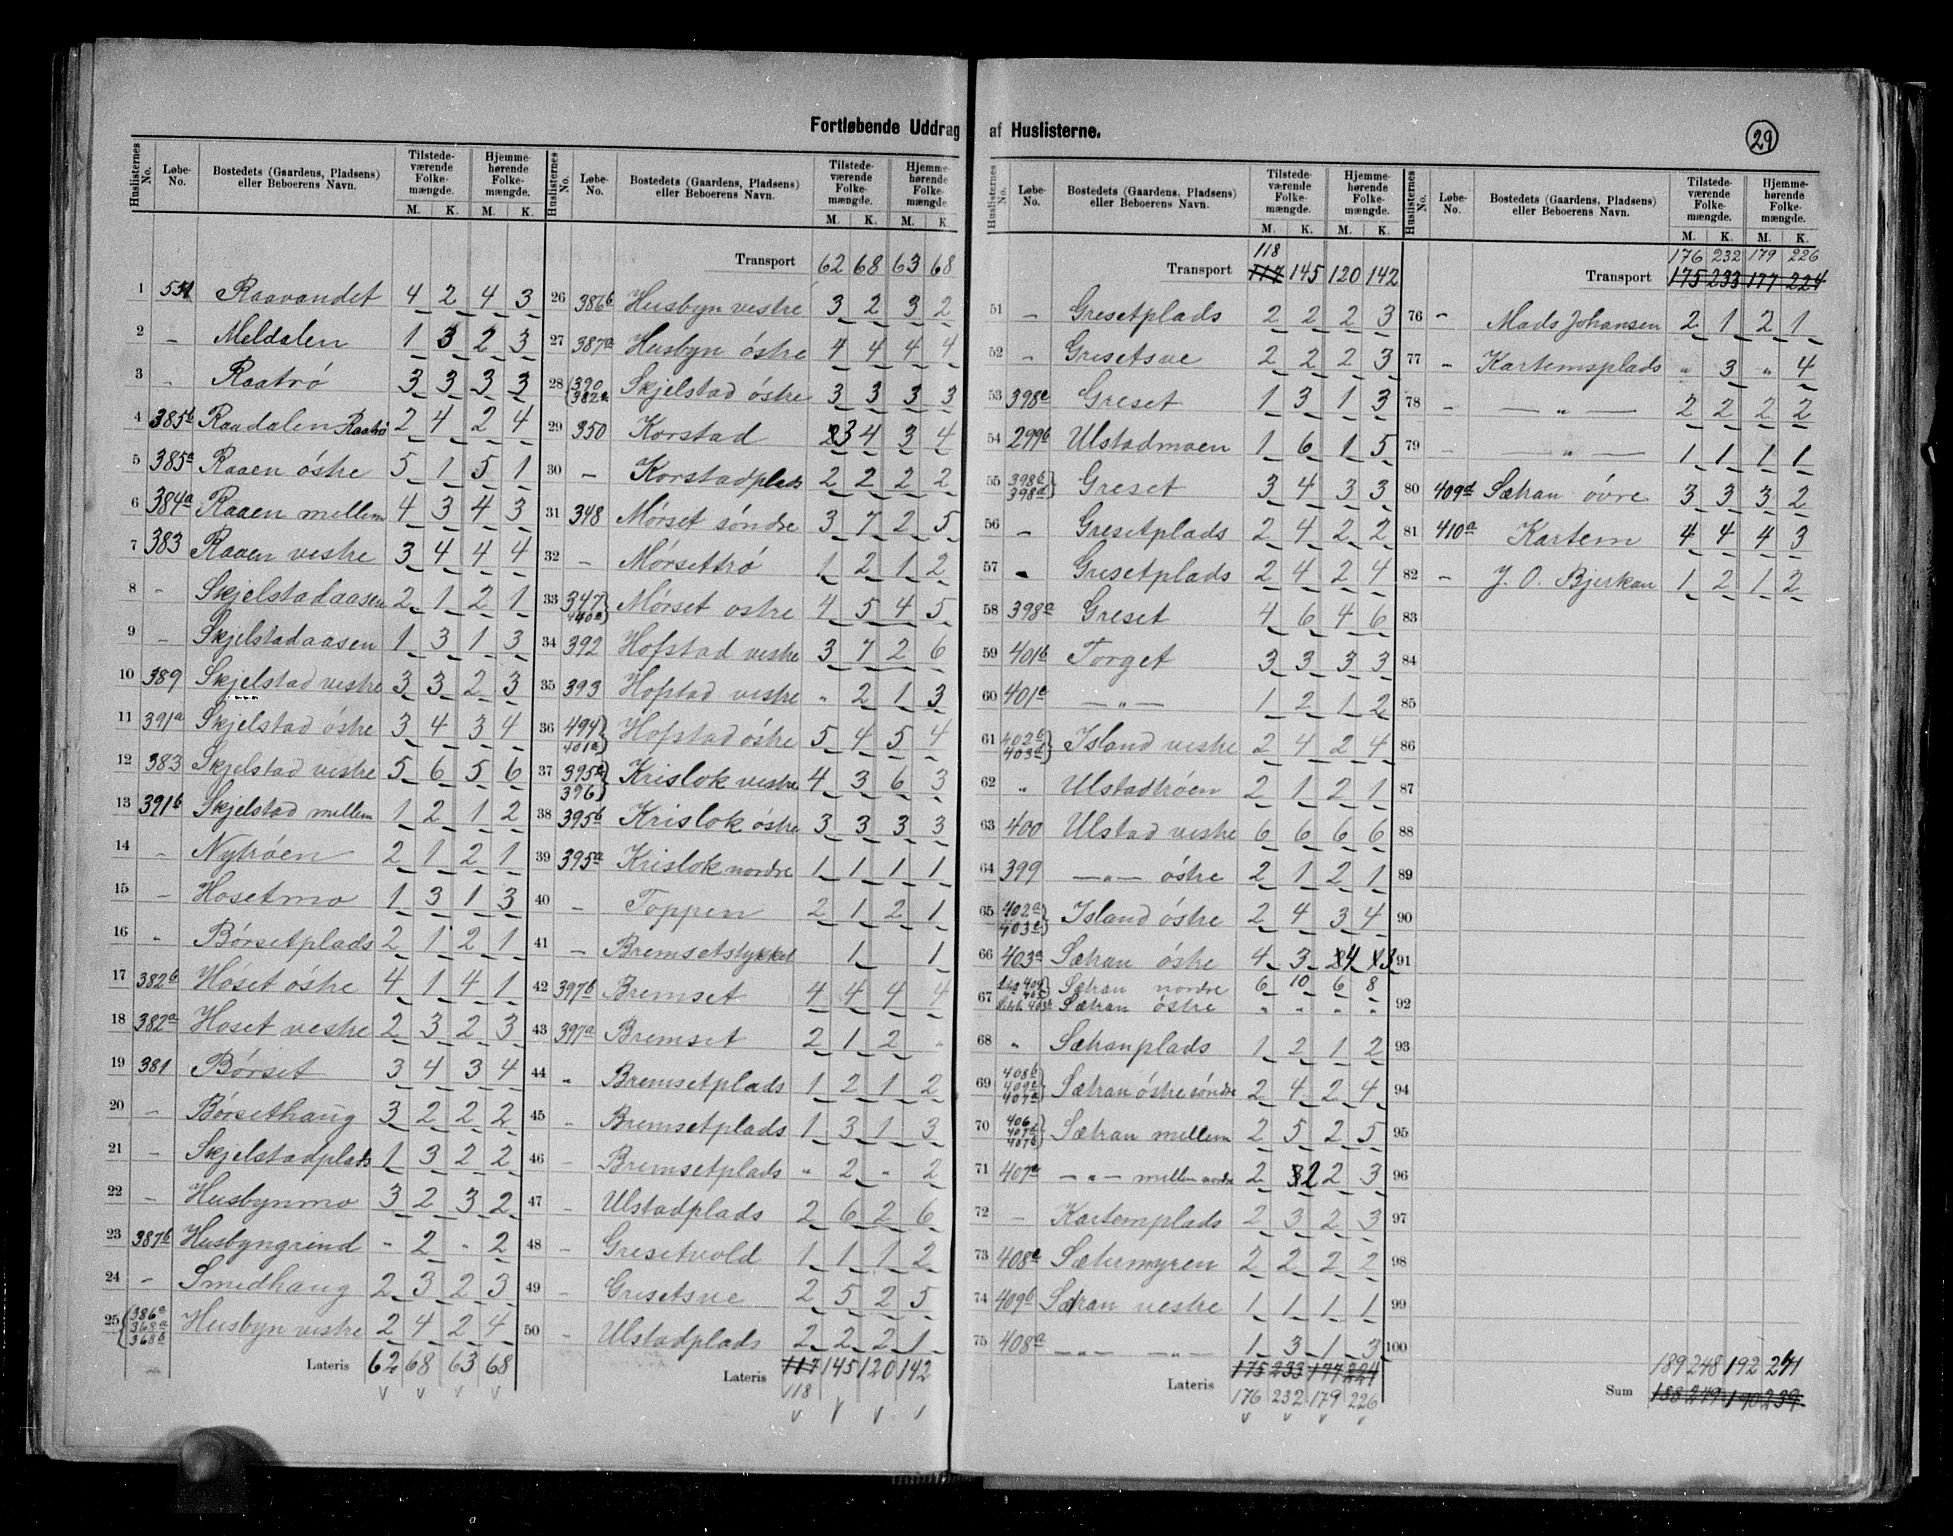 Fortløbende Uddrag af Huslisterne.
29
Huslisternes No. | Løbe-No. | Bostedets (Gaardens, Pladsens) eller Beboerens Navn. | Tilstede-værende Folke-mængde. M. K. | Hjemme-hørende Folke-mængde. M. K.
1 551 Raavandet 4 2 4 3
2 - Meldalen 1 3 2 3
3 - Raatrø 3 3 3 3
4 385b Raadalen Raatrø 2 4 2 4
5 385a Raaen østre 5 1 5 1
6 384a Raaen mellem 4 3 4 3
7 383 Raaen vestre 3 4 4 4
8 - Skjelstadaasen 2 1 2 1
9 - Skjelstadaasen 1 3 1 3
10 389 Skjelstad vestre 3 3 2 3
11 391a Skjelstad østre 3 4 3 4
12 383 Skjelstad vestre 5 6 5 6
13 391b Skjelstad mellem 1 2 1 2
14 - Nytrøen 2 1 2 1
15 - Hosetmo 1 3 1 3
16 - Børsetplads 2 1 2 1
17 382b Høset østre 4 1 4 1
18 382a Hoset vestre 2 3 2 3
19 381 Børset 3 4 3 4
20 - Børsethaug 3 2 2 2
21 - Skjelstadplads 1 3 2 2
22 - Husbynmo 3 2 3 2
23 387b Husbyngrind - 2 - 2
24 - Smedhaug 2 3 2 3
25 386a 368a 368b Husbyn vestre 2 4 2 4
Lateris 62 68 63 68
Transport 62 68 63 68
26 386b Husbyn vestre 3 2 3 2
27 387a Husbyn østre 4 4 4 4
28 390 382a Skjelstad østre 3 3 3 3
29 350 Korstad 3 4 3 4
30 - Korstadplads 2 2 2 2
31 348 Mørset søndre 3 7 2 5
32 - Mørsettrø 1 2 1 2
33 347 440a Mørset ostre 4 5 4 5
34 392 Hofstad vestre 3 7 2 6
35 393 Hofstad vestre " 2 1 3
36 494 401a Hofstad østre 5 4 5 4
37 395a 396 Krislok vestre 4 3 6 3
38 395b Krislok østre 3 3 3 3
39 395a Krislok nordre 1 1 1 1
40 - Toppen 2 1 2 1
41 - Bremsetstykket 1 1
42 397b Bremset 4 4 4 4
43 397a Bremset 2 1 2 "
44 " Bremsetplads 1 2 1 2
45 - Bremsetplads 1 3 1 3
46 - Bremsetplads " 2 " 2
47 - Ulstadplads 2 6 2 6
48 - Gresetvold 1 1 1 2
49 - Grisetsve 2 5 2 5
50 - Ulstadplads 2 2 2 1
Lateris 117 145 120 142
118
118
Transport 117 145 120 142
51 - Gresetplads 2 2 2 3
52 - Grisetsve 2 2 2 3
53 398c Greset 1 3 1 3
54 299b Ulstadmoen 1 6 1 5
55 398b 398d Greset 3 4 3 3
56 - Gresetplads 2 4 2 2
57 - Gresetplads 2 4 2 4
58 398a Greset 4 6 4 6
59 401b Torget 3 3 3 3
60 401c — " — 1 2 1 2
61 402b 403b Island vestre 2 4 2 4
62 " Ulstadtrøen 2 1 2 1
63 400 Ulstad vestre 6 6 6 6
64 399 — " — østre 2 1 2 1
65 402a 403c Island østre 2 4 3 4
66 403a Sætran østre 4 3 4 3
67 Sætran nordre 6 10 6 8
Sætran østre " " " "
68 " Sætranplads 1 2 1 2
69 408b 409c 407a Sætran østre søndre 2 4 2 4
70 406 407d 407b Sætran mellem 2 5 2 5
71 407c — " — mellem nordre 2 2 2 3
72 - Kartemplads 2 3 2 3
73 408c Sætermyren 2 2 2 2
74 409b Sætran vestre 1 1 1 1
75 408a — " — — " — 1 3 1 3
Lateris 175 233 177 224
176 232 179 226
176 232 179 226
Transport 175 233 177 224
76 - Mads Johansen 2 1 2 1
77 - Kartemsplads " 3 " 4
78 - — " — 2 2 2 2
79 - — " — 1 1 1 1
80 409d Sætran øvre 3 3 3 2
81 410a Kartem 4 4 4 3
82 - J. O. Bjerkan 1 2 1 2
83
84
85
86
87
88
89
90
91
92
93
94
95
96
97
98
99
100
189 248 192 241
Sum 188 249 190 239